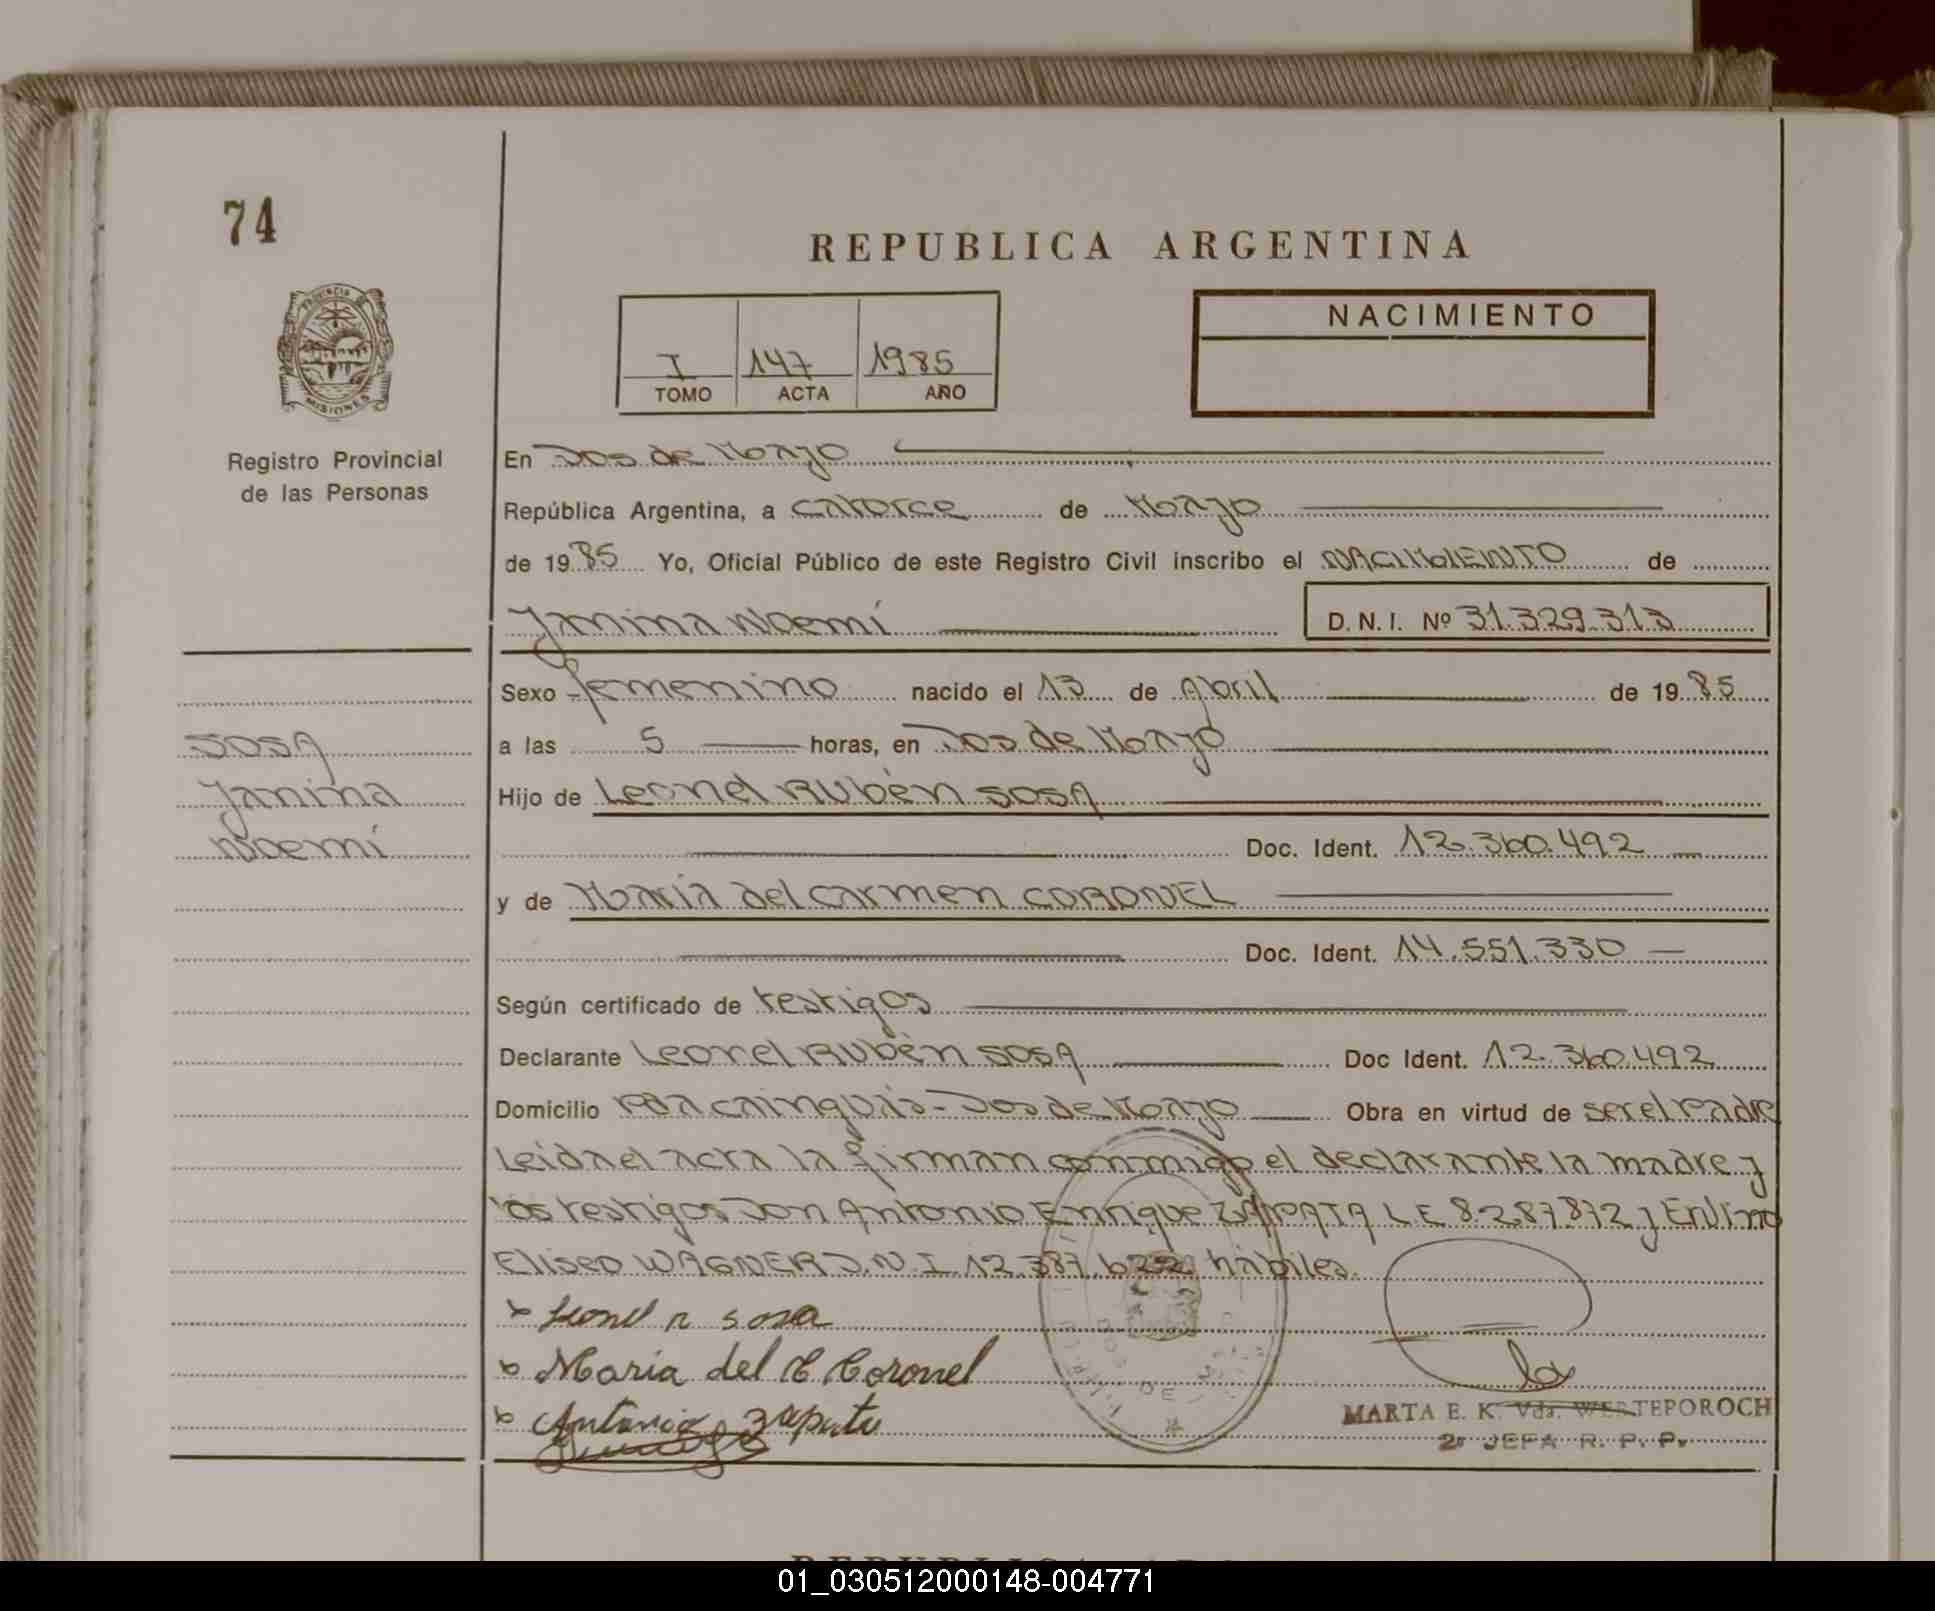 74
REPUBLICA ARGENTINA
PROVINCIA DE
MISIONES
NACIMIENTO
I 147 1985
TOMO ACTA AÑO
Registro Provincial
de las Personas
En Dos de Mayo
República Argentina, a catorce de Mayo
de 1985 Yo, Oficial Público de este Registro Civil inscribo el NACIMIENTO de
Janina Noemí D. N. I. Nº 31.329.313
Sexo femenino nacido el 13 de Abril de 1985
SOSA
Janina
Noemí
a las 5 horas, en Dos de Mayo
Hijo de Leonel Rubén SOSA
Doc. Ident. 12.360.492
y de María del Carmen CORONEL
Doc. Ident. 14.551.330
Según certificado de testigos
Declarante Leonel Rubén SOSA Doc Ident. 12.360.492
Domicilio Pda Cainguás - Dos de Mayo Obra en virtud de ser el padre
Leida el acta la firman conmigo el declarante la madre y
los testigos Don Antonio Enrique ZAPATA L E 8.287.872 y
Eliseo WAGNER D.N.I. 12.387.622 hábiles.
Leonel R Sosa
Maria del C Coronel
Antonio Zapata
MARTA E. K. Vda. WERTEPOROCH
2ª JEFA R. P. P.
01_030512000148-004771